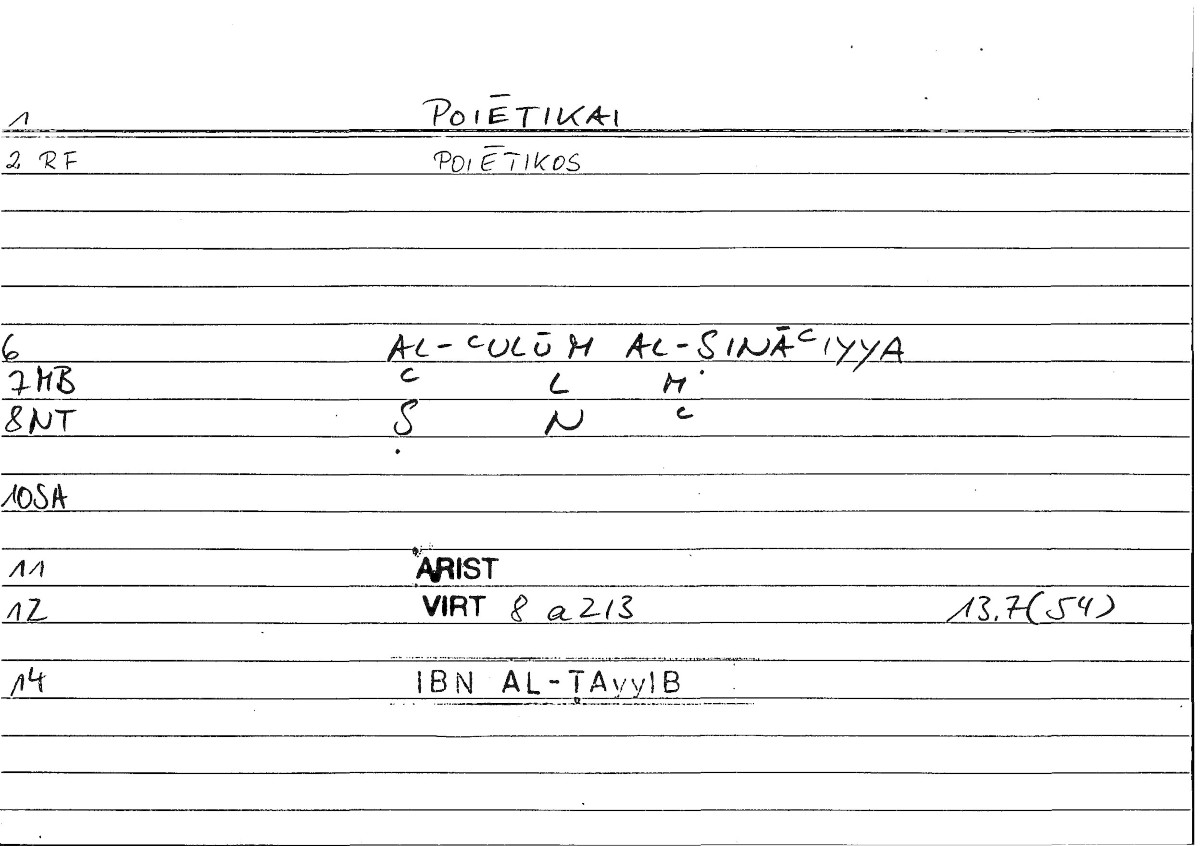 1 POIĒTIKAI
2 RF POIĒTIKOS
6 AL-ᶜULŪM AL-ṢINĀᶜIYYA
7 MB ᶜ L M
8 NT Ṣ N ᶜ
10 SA
11 ARIST
12 VIRT 8 a 2/3 13.7(54)
14 IBN AL-ṬAyyIB